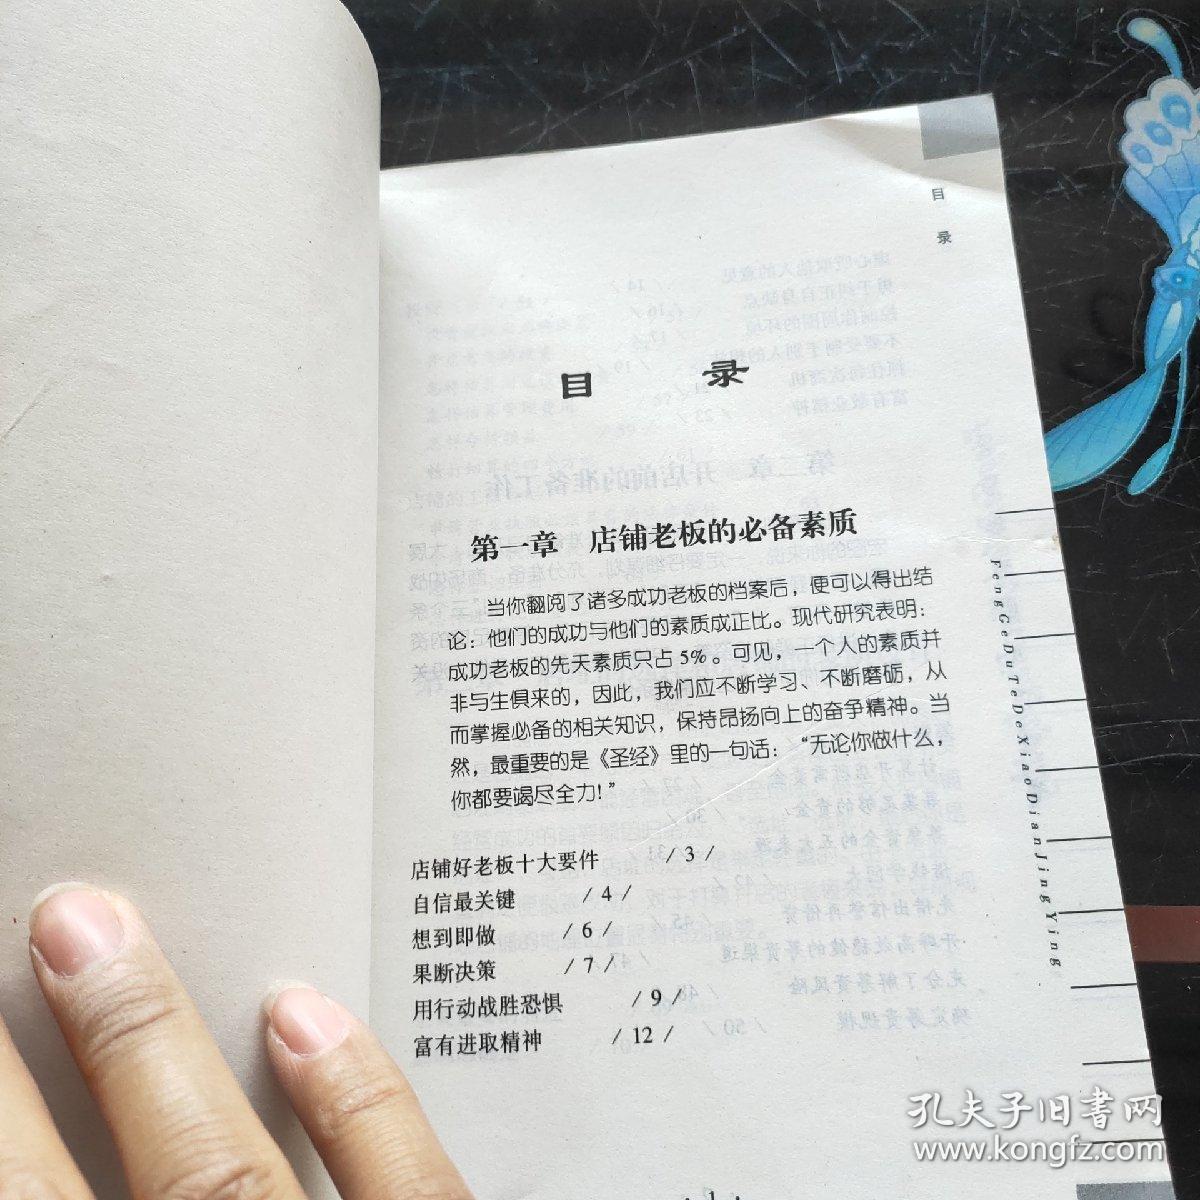 目
录
目 录
第一章 店铺老板的必备素质
当你翻阅了诸多成功老板的档案后，便可以得出结
论：他们的成功与他们的素质成正比。现代研究表明：
成功老板的先天素质只占5%。可见，一个人的素质并
非与生俱来的，因此，我们应不断学习、不断磨砺，从
而掌握必备的相关知识，保持昂扬向上的奋争精神。当
然，最重要的是《圣经》里的一句话：“无论你做什么，
你都要竭尽全力！”
店铺好老板十大要件 / 3 /
自信最关键 / 4 /
想到即做 / 6 /
果断决策 / 7 /
用行动战胜恐惧 / 9 /
富有进取精神 / 12 /
· 1 ·
FengGeDuTeDeXiaoDianJingYing
孔夫子旧書网
www.kongfz.com